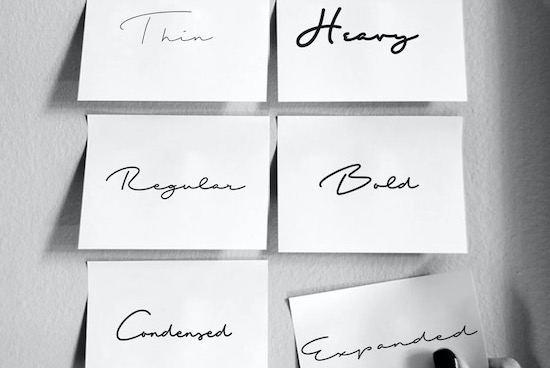 Thin
Heavy
Regular
Bold
Condensed
Expanded